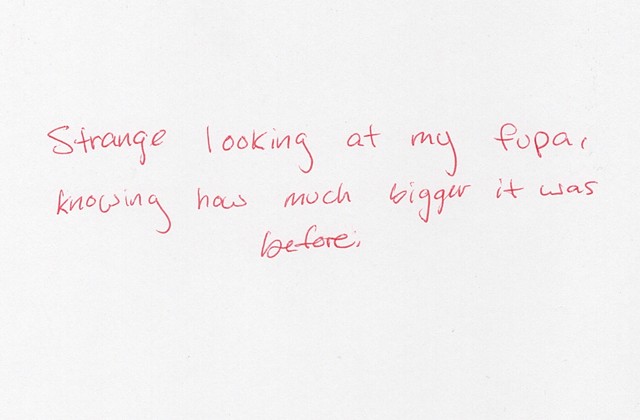 Strange looking at my fupa,
knowing how much bigger it was
before.